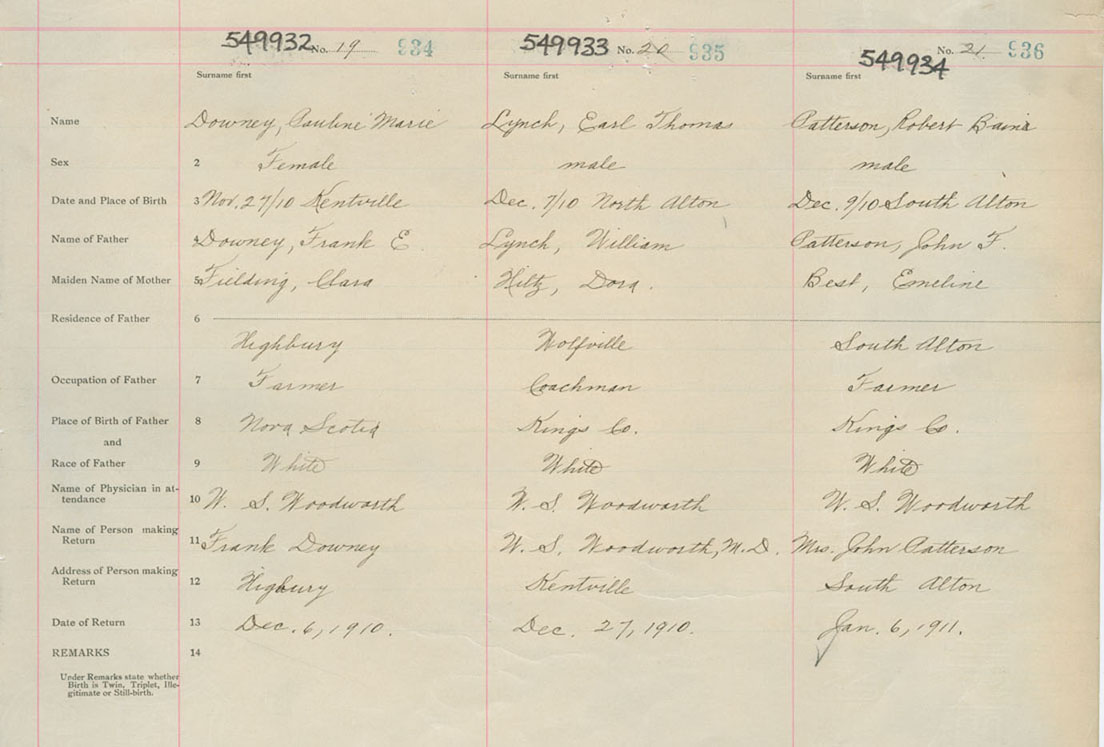 549932 No. 19 934 549933 No. 20 935 549934 No. 21 936
Surname first Surname first Surname first
Name Downey, Pauline Marie Lynch, Earl Thomas Patterson, Robert
Sex 2 Female male male
Date and Place of Birth 3 Nov. 27/10 Kentville Dec. 7/10 North Alton Dec. 9/10 South Alton
Name of Father 4 Downey, Frank E. Lynch, William Patterson, John F.
Maiden Name of Mother 5 Fielding, Clara Hiltz, Dora. Best, Emeline
Residence of Father 6
Highbury Wolfville South Alton
Occupation of Father 7 Farmer Coachman Farmer
Place of Birth of Father 8 Nova Scotia Kings Co. Kings Co.
and
Race of Father 9 White White White
Name of Physician in at-
tendance 10 W. S. Woodworth W. S. Woodworth W. S. Woodworth
Name of Person making
Return 11 Frank Downey W. S. Woodworth, M.D. Mrs. John Patterson
Address of Person making
Return 12 Higbury Kentville South Alton
Date of Return 13 Dec. 6, 1910. Dec. 27, 1910. Jan. 6, 1911.
REMARKS 14
Under Remarks state whether
Birth is Twin, Triplet, Ille-
gitimate or Still-birth.